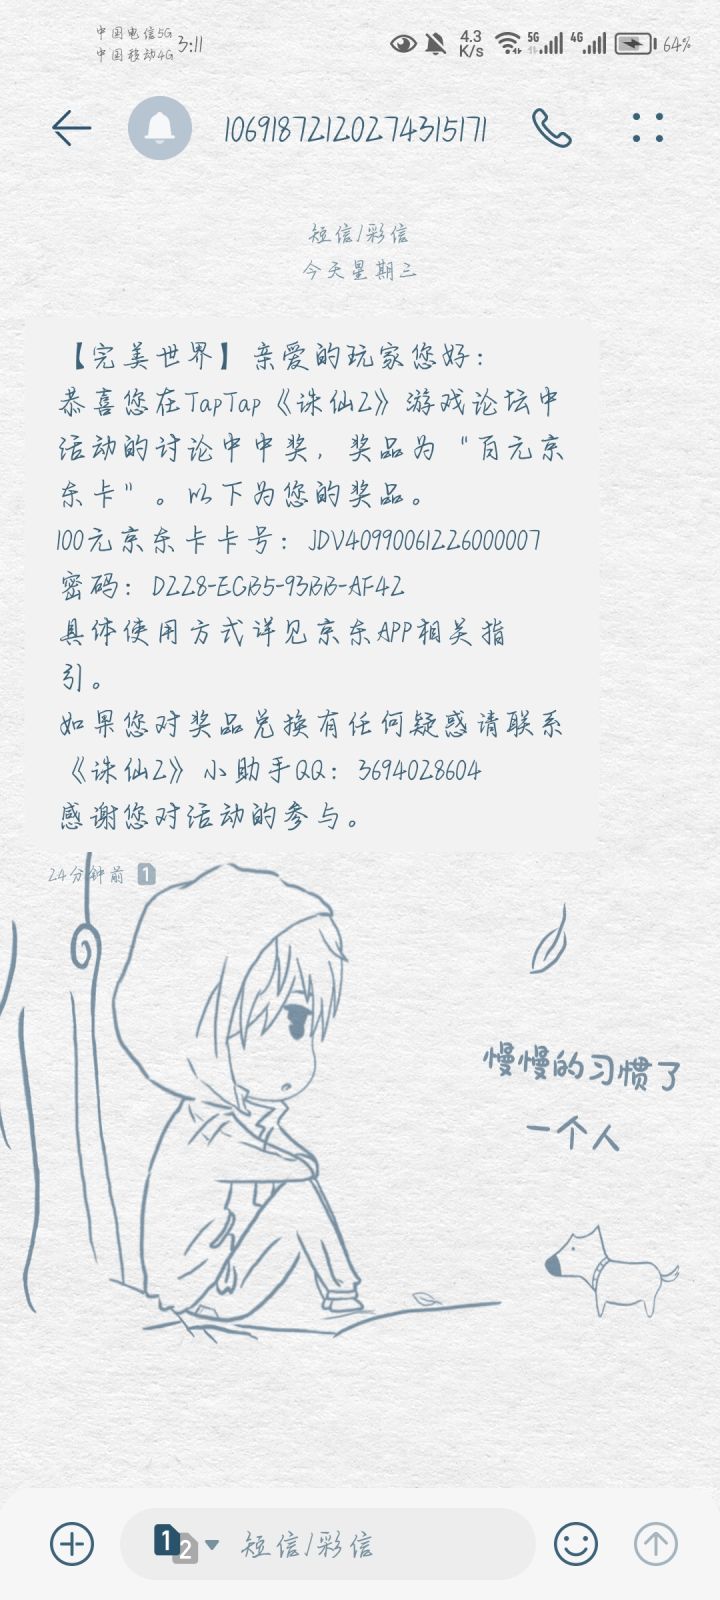 中国电信5G
中国移动4G
3:11
4.3
K/s
5G
4G
64%
10691872120274315171
短信/彩信
今天星期三
【完美世界】亲爱的玩家您好：
恭喜您在TapTap《诛仙2》游戏论坛中
活动的讨论中中奖，奖品为"百元京
东卡"。以下为您的奖品。
100元京东卡卡号：JDV40990061226000007
密码：D228-EGB5-93BB-AF42
具体使用方式详见京东APP相关指
引。
如果您对奖品兑换有任何疑惑请联系
《诛仙2》小助手QQ：3694028604
感谢您对活动的参与。
24分钟前 1
慢慢的习惯了
一个人
1 2 短信/彩信